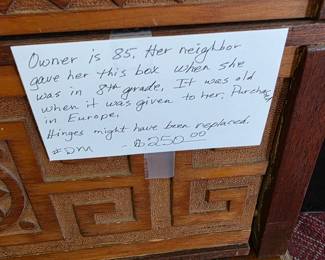 Owner is 85. Her neighbor
gave her this box when she
was in 8th grade. It was old
when it was given to her. Purchased
in Europe.
Hinges might have been replaced.
#DM - $250.00